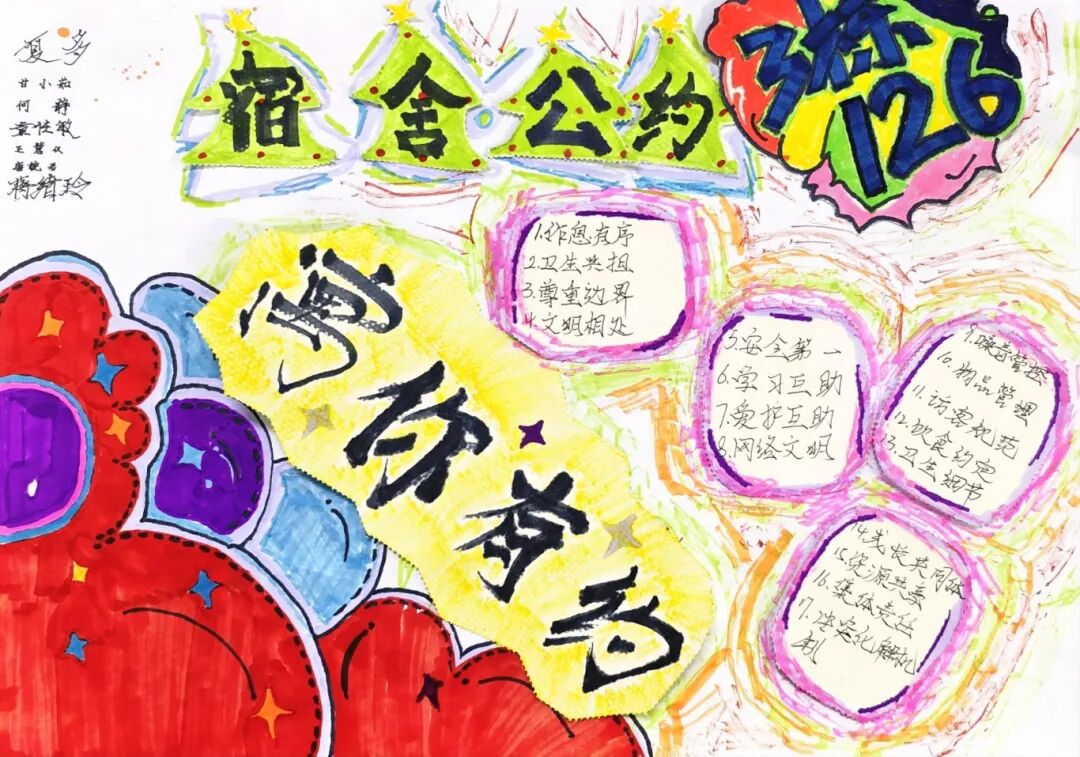 夏多
甘小茹
何静
童佳敏
宿舍公约
3栋
126
与你有约
1.作息有序
2.卫生共担
3.尊重边界
4.文明相处
5.安全第一
6.学习互助
7.爱护互助
8.网络文明
9.噪音管控
10.物品管理
11.访客规范
12.饮食约定
13.卫生细节
14.成长共同体
15.资源共享
16.集体
17.化解机
制